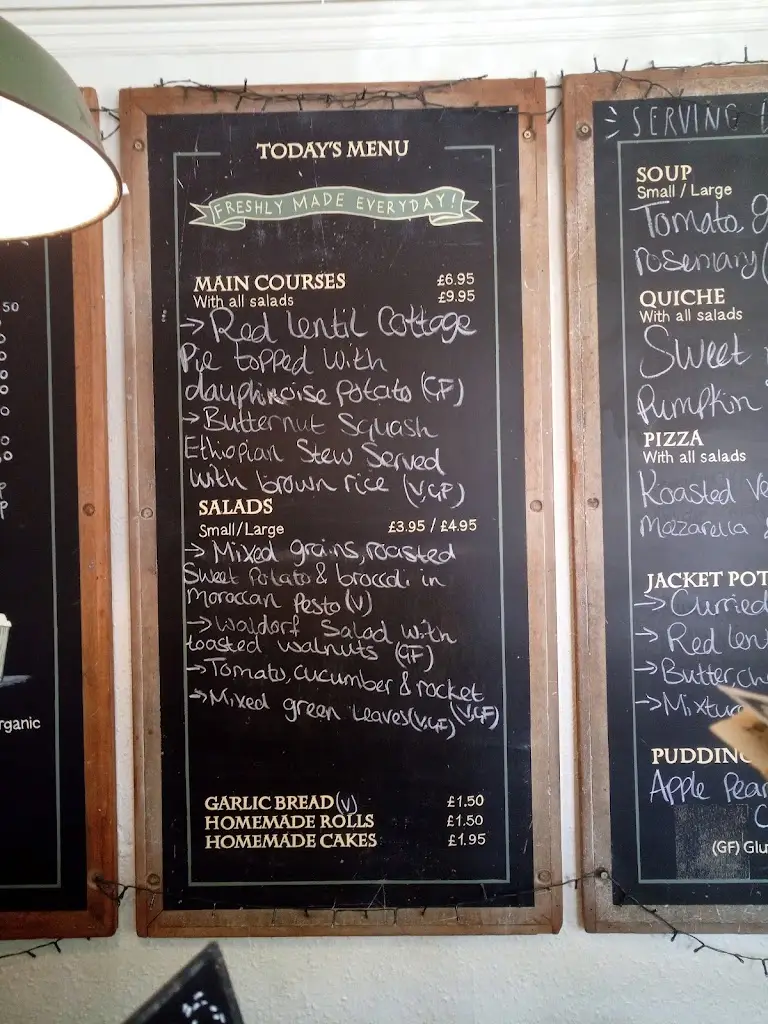 50
rganic
TODAY'S MENU
FRESHLY MADE EVERYDAY!
MAIN COURSES £6.95
With all salads £9.95
→ Red lentil Cottage
Pie topped with
dauphinoise potato (GF)
→ Butternut Squash
Ethiopian Stew Served
with brown rice (V,GF)
SALADS
Small/Large £3.95 / £4.95
→ Mixed grains, roasted
Sweet Potato & broccoli in
Moroccan Pesto (V)
→ Waldorf Salad with
toasted walnuts (GF)
→ Tomato, cucumber & rocket
(V,GF)
→ Mixed green leaves (V,GF)
GARLIC BREAD (V) £1.50
HOMEMADE ROLLS £1.50
HOMEMADE CAKES £1.95
SERVING
SOUP
Small / Large
Tomato, &
rosemary (
QUICHE
With all salads
Sweet
Pumpkin
PIZZA
With all salads
Roasted Ve
Mozarella &
JACKET POT
→ Curried
→ Red lent
→ Butter, ch
→ Mixtu
PUDDING
Apple Pear
C
(GF) Glu